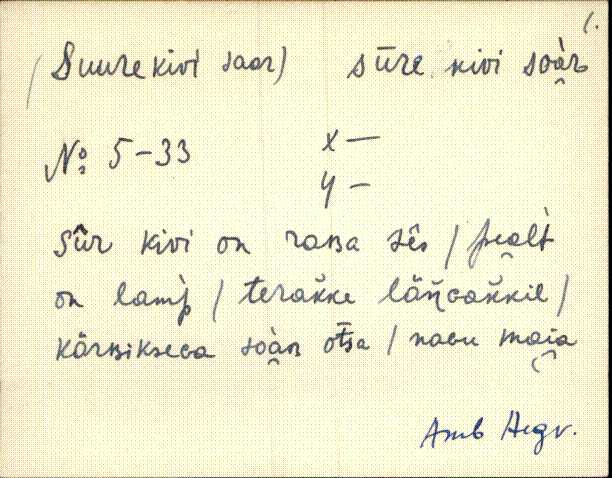 1.
(Suurekivi saar) sūre kivi soàr
No: 5-33 x —
y —
sûr kivi on raʙa sês / pealt
on lamp / terǎkke läŋɢǎkkil /
kärʙikseɢa soàʀ otsa / naɢu maia
Amb Aegv.